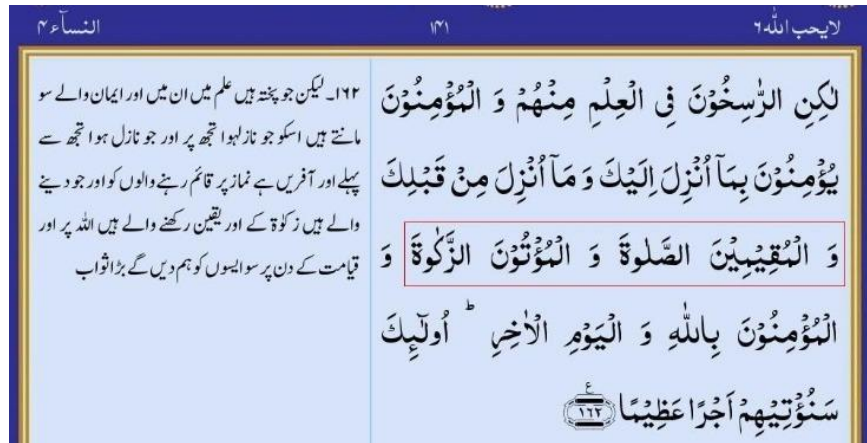 لایحب اللّٰه۶
۱۴۱
النسآء۴
لٰکِنِ الرّٰسِخُوۡنَ فِی الۡعِلۡمِ مِنۡہُمۡ وَ الۡمُؤۡمِنُوۡنَ
یُؤۡمِنُوۡنَ بِمَاۤ اُنۡزِلَ اِلَیۡکَ وَ مَاۤ اُنۡزِلَ مِنۡ قَبۡلِکَ
وَ الۡمُقِیۡمِیۡنَ الصَّلٰوۃَ وَ الۡمُؤۡتُوۡنَ الزَّکٰوۃَ وَ
الۡمُؤۡمِنُوۡنَ بِاللّٰہِ وَ الۡیَوۡمِ الۡاٰخِرِ ؕ اُولٰٓئِکَ
سَنُؤۡتِیۡہِمۡ اَجۡرًا عَظِیۡمًا ﴿۱۶۲﴾ ع
۱۶۲۔ لیکن جو پختہ ہیں علم میں ان میں اور ایمان والے سو
مانتے ہیں اسکو جو نازلہوا تجھ پر اور جو نازل ہوا تجھ سے
پہلے اور آفریں ہے نماز پر قائم رہنے والوں کو اور جو دینے
والے ہیں زکوٰۃ کے اور یقین رکھنے والے ہیں اللہ پر اور
قیامت کے دن پر سو ایسوں کو ہم دیں گے بڑا ثواب